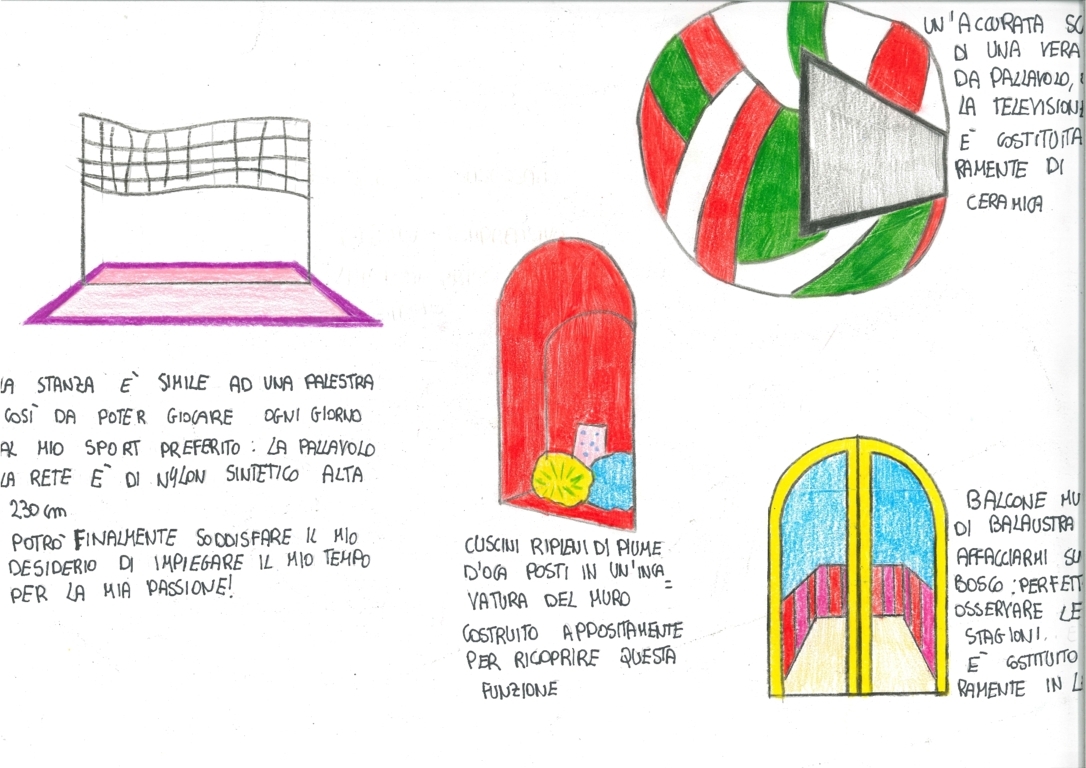 UN'ACCURATA
DI UNA VERA
DA PALLAVOLO,
LA TELEVISIONE
È COSTITUITA
RAMENTE DI
CERAMICA
LA STANZA È SIMILE AD UNA PALESTRA
COSÌ DA POTER GIOCARE OGNI GIORNO
AL MIO SPORT PREFERITO: LA PALLAVOLO
LA RETE È DI NYLON SINTETICO ALTA
230 cm
POTRÒ FINALMENTE SODDISFARE IL MIO
DESIDERIO DI IMPIEGARE IL MIO TEMPO
PER LA MIA PASSIONE!
CUSCINI RIPIENI DI PIUME
D'OCA POSTI IN UN'INCA=
VATURA DEL MURO
COSTRUITO APPOSITAMENTE
PER RICOPRIRE QUESTA
FUNZIONE
BALCONE
DI BALAUSTRA
AFFACCIARMI
BOSCO: PERFETT
OSSERVARE LE
STAGIONI.
È COSTITUITO
RAMENTE IN